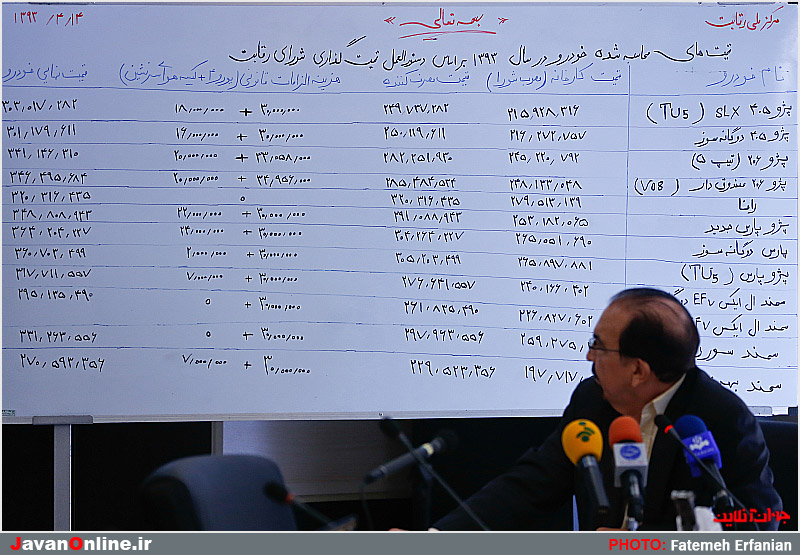 مرکز ملی رقابت « بسمه تعالی » ۱۳۹۳/۴/۱۴
قیمت‌های محاسبه شده خودرو در سال ۱۳۹۳ براساس دستورالعمل قیمت گذاری شورای رقابت
نام خودرو قیمت کارخانه (مصوب شورا) قیمت مصرف کننده هزینه الزامات قانونی (یورو ۴ + کیسه هوای سرنشین) قیمت نهایی خودرو
پژو ۴۰۵ SLX (TU5) ۲۱۵٬۹۲۸٬۳۱۶ ۲۴۹٬۷۳۷٬۲۸۲ ۳۰٬۰۰۰٬۰۰۰ + ۱۸٬۰۰۰٬۰۰۰ ۳۰۳٬۰۱۷٬۲۸۲
پژو ۴۰۵ دوگانه سوز ۲۱۶٬۲۷۲٬۷۵۷ ۲۵۰٬۱۱۹٬۶۱۱ ۳۰٬۰۰۰٬۰۰۰ + ۱۶٬۰۰۰٬۰۰۰ ۳۰۱٬۱۷۹٬۶۱۱
پژو ۲۰۶ (تیپ ۵) ۲۴۵٬۲۲۰٬۷۹۲ ۲۸۲٬۲۵۱٬۹۳۰ ۳۳٬۰۵۸٬۰۰۰ + ۲۰٬۰۰۰٬۰۰۰ ۳۴۱٬۱۴۶٬۳۱۰
پژو ۲۰۶ صندوق دار (V08) ۲۴۸٬۱۲۳٬۰۴۸ ۲۸۵٬۴۸۴٬۵۲۴ ۳۴٬۹۵۶٬۰۰۰ + ۲۰٬۰۰۰٬۰۰۰ ۳۴۶٬۴۹۵٬۶۸۴
رانا ۲۷۹٬۵۱۳٬۱۳۹ ۳۲۰٬۳۱۶٬۴۳۵ ۰ ۳۲۰٬۳۱۶٬۴۳۵
پژو پارس جدید ۲۵۳٬۱۸۲٬۰۶۵ ۲۹۱٬۰۸۸٬۹۴۳ ۳۰٬۰۰۰٬۰۰۰ + ۲۲٬۰۰۰٬۰۰۰ ۳۴۸٬۸۰۸٬۹۴۳
پارس دوگانه سوز ۲۶۵٬۰۵۱٬۶۹۰ ۳۰۴٬۲۶۴٬۲۲۷ ۳۰٬۰۰۰٬۰۰۰ + ۲۴٬۰۰۰٬۰۰۰ ۳۶۴٬۲۰۴٬۲۲۷
پژو پارس (TU5) ۲۶۵٬۸۹۷٬۸۸۱ ۳۰۵٬۲۰۳٬۴۹۹ ۳۰٬۰۰۰٬۰۰۰ + ۲٬۰۰۰٬۰۰۰ ۳۶۰٬۷۰۳٬۴۹۹
سمند ال ایکس EF۷ ۲۴۰٬۱۶۶٬۴۰۲ ۲۷۶٬۶۴۱٬۵۵۷ ۳۰٬۰۰۰٬۰۰۰ + ۷٬۰۰۰٬۰۰۰ ۳۱۷٬۷۱۱٬۵۵۷
سمند ال ایکس ۲۲۶٬۸۲۷٬۶۰۲ ۲۶۱٬۸۳۵٬۴۹۰ ۳۰٬۰۰۰٬۰۰۰ + ۰ ۲۹۵٬۱۳۵٬۴۹۰
سمند ۲۵۹٬۲۷۵ ۲۹۷٬۹۶۳٬۵۵۶ ۳۰٬۰۰۰٬۰۰۰ + ۰ ۳۳۱٬۲۶۳٬۵۵۶
سمند ۱۹۷٬۷۱۷ ۲۲۹٬۵۲۳٬۳۵۶ ۳۰٬۰۰۰٬۰۰۰ + ۷٬۰۰۰٬۰۰۰ ۲۷۰٬۵۹۳٬۳۵۶
جوان آنلاین
JavanOnline.ir PHOTO: Fatemeh Erfanian